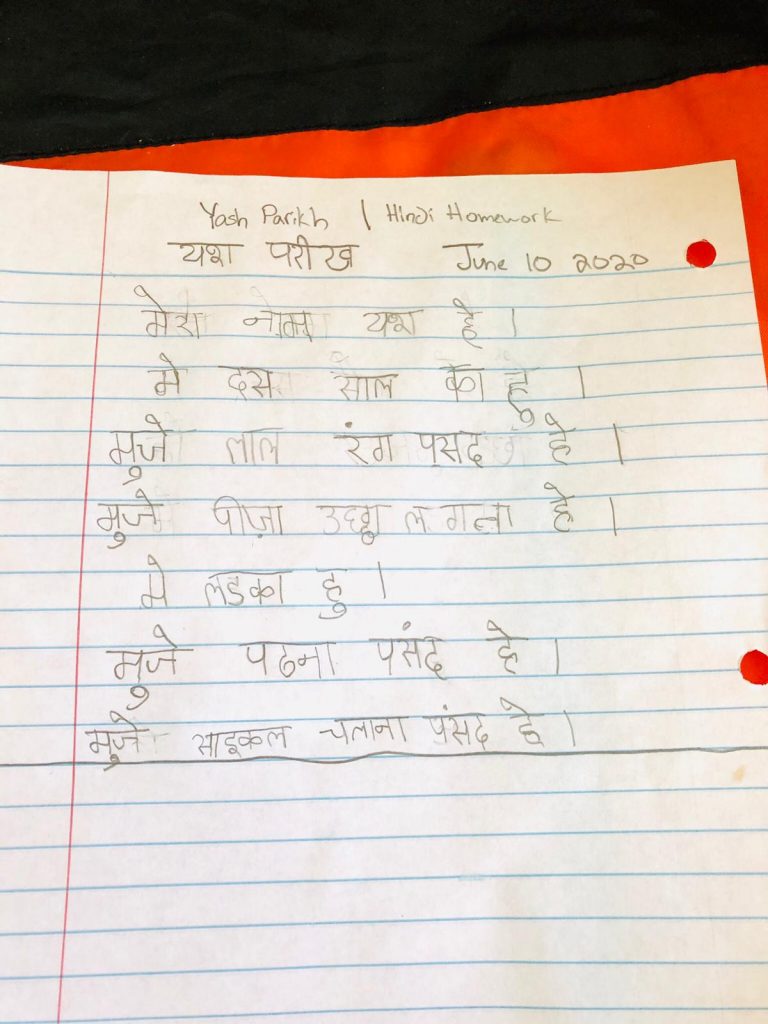 Yash Parikh | Hindi Homework
यश परीख June 10 2020
मेरा नाम यश हे ।
मे दस साल का हु ।
मुजे लाल रंग पसद हे ।
मुजे पीज़ा उछ्छा लगता हे ।
मे लडका हु ।
मुजे पढना पसंद हे ।
मुजे साइकल चलाना पंसद हे ।